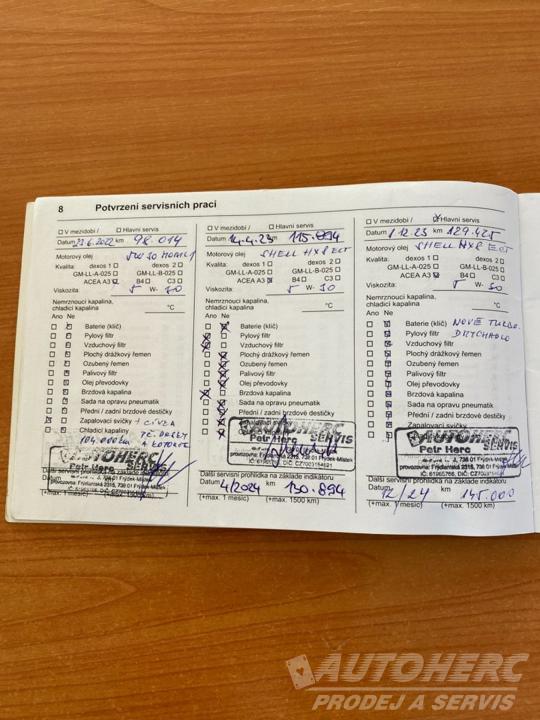 8 Potvrzení servisních prací
V mezidobí / Hlavní servis
Datum 23.6.2022 km 98.014
Motorový olej 5W30 MOBIL 1
Kvalita: dexos 1 dexos 2
GM-LL-A-025 GM-LL-B-025
ACEA A3 B4 C3
Viskozita: 5 W- 30
Nemrznoucí kapalina,
chladicí kapalina °C
Ano Ne
Baterie (klíč)
Pylový filtr
Vzduchový filtr
Plochý drážkový řemen
Ozubený řemen
Palivový filtr
Olej převodovky
Brzdová kapalina
Sada na opravu pneumatik
Přední / zadní brzdové destičky
Zapalovací svíčky + CÍVKA
Chladicí kapaliny
104.000km
AUTOHERC
Petr Herc SERVIS
provozovna: Frýdlantská 2315, 738 01 Frýdek-Místek
Další servisní prohlídka na základě indikátoru
(+max. 1 měsíc) (+max. 1500 km)
V mezidobí / Hlavní servis
Datum 14.4.23 km 115.894
Motorový olej SHELL HX8 ECT
Kvalita: dexos 1 dexos 2
GM-LL-A-025 GM-LL-B-025
ACEA A3 B4 C3
Viskozita: 5 W- 30
Nemrznoucí kapalina,
chladicí kapalina °C
Ano Ne
Baterie (klíč)
Pylový filtr
Vzduchový filtr
Plochý drážkový řemen
Ozubený řemen
Palivový filtr
Olej převodovky
Brzdová kapalina
Sada na opravu pneumatik
Přední / zadní brzdové destičky
Zapalovací svíčky
AUTOHERC
Petr Herc SERVIS
provozovna: Frýdlantská 2315, 738 01 Frýdek-Místek
Další servisní prohlídka na základě indikátoru
Datum 4/2024 km 130.894
(+max. 1 měsíc) (+max. 1500 km)
V mezidobí / Hlavní servis
Datum 1.12.23 km 129.425
Motorový olej SHELL HX8 ECT
Kvalita: dexos 1 dexos 2
GM-LL-A-025 GM-LL-B-025
ACEA A3 B4 C3
Viskozita: 5 W- 30
Nemrznoucí kapalina,
chladicí kapalina °C
Ano Ne
Baterie (klíč) NOVÉ TURBO
Pylový filtr DMYCHADLO
Vzduchový filtr
Plochý drážkový řemen
Ozubený řemen
Palivový filtr
Olej převodovky
Brzdová kapalina
Sada na opravu pneumatik
Přední / zadní brzdové destičky
Zapalovací svíčky
AUTOHERC
Petr Herc SERVIS
provozovna: Frýdlantská 2315, 738 01 Frýdek-Místek
Další servisní prohlídka na základě indikátoru
Datum 12/24 km 145.000
(+max. 1 měsíc) (+max. 1500 km)
AUTOHERC
PRODEJ A SERVIS